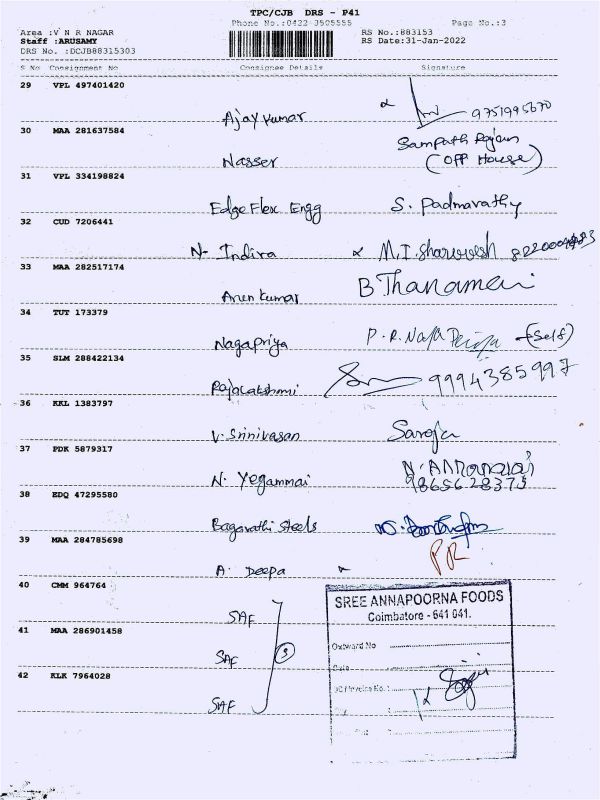 TPC/CJB DRS - P41
Phone No.:0422 3505555 Page No.:3
Area :V N R NAGAR RS No.:883153
Staff :ARUSAMY RS Date:31-Jan-2022
DRS No. :DCJB88315303
S No Consignment No Consignee Details Signature
29 VPL 497401420
Ajay kumar 9751995670
30 MAA 281637584
Nasser Sampath Rajan
(Off House)
31 VPL 334198824
Edge Flex Engg S. Padmavathy
32 CUD 7206441
N- Indira M.I. Sharvesh
33 MAA 282517174
Arun kumar B Thanamani
34 TUT 173379
Nagapriya P. R. Naga Priya (Self)
35 SLM 288422134
Rajalakshmi 9994385997
36 KKL 1383797
V. Srinivasan Saroja
37 PDK 5879317
N. Yegammai N. Annamalai
9865628373
38 EDQ 47295580
Bagavathi Steels
39 MAA 284785698 PR
A. Deepa
40 CMM 964764
SAF
41 MAA 286901458
SAF 3
42 KLK 7964028
SAF
SREE ANNAPOORNA FOODS
Coimbatore - 641 041.
Outward No
Date